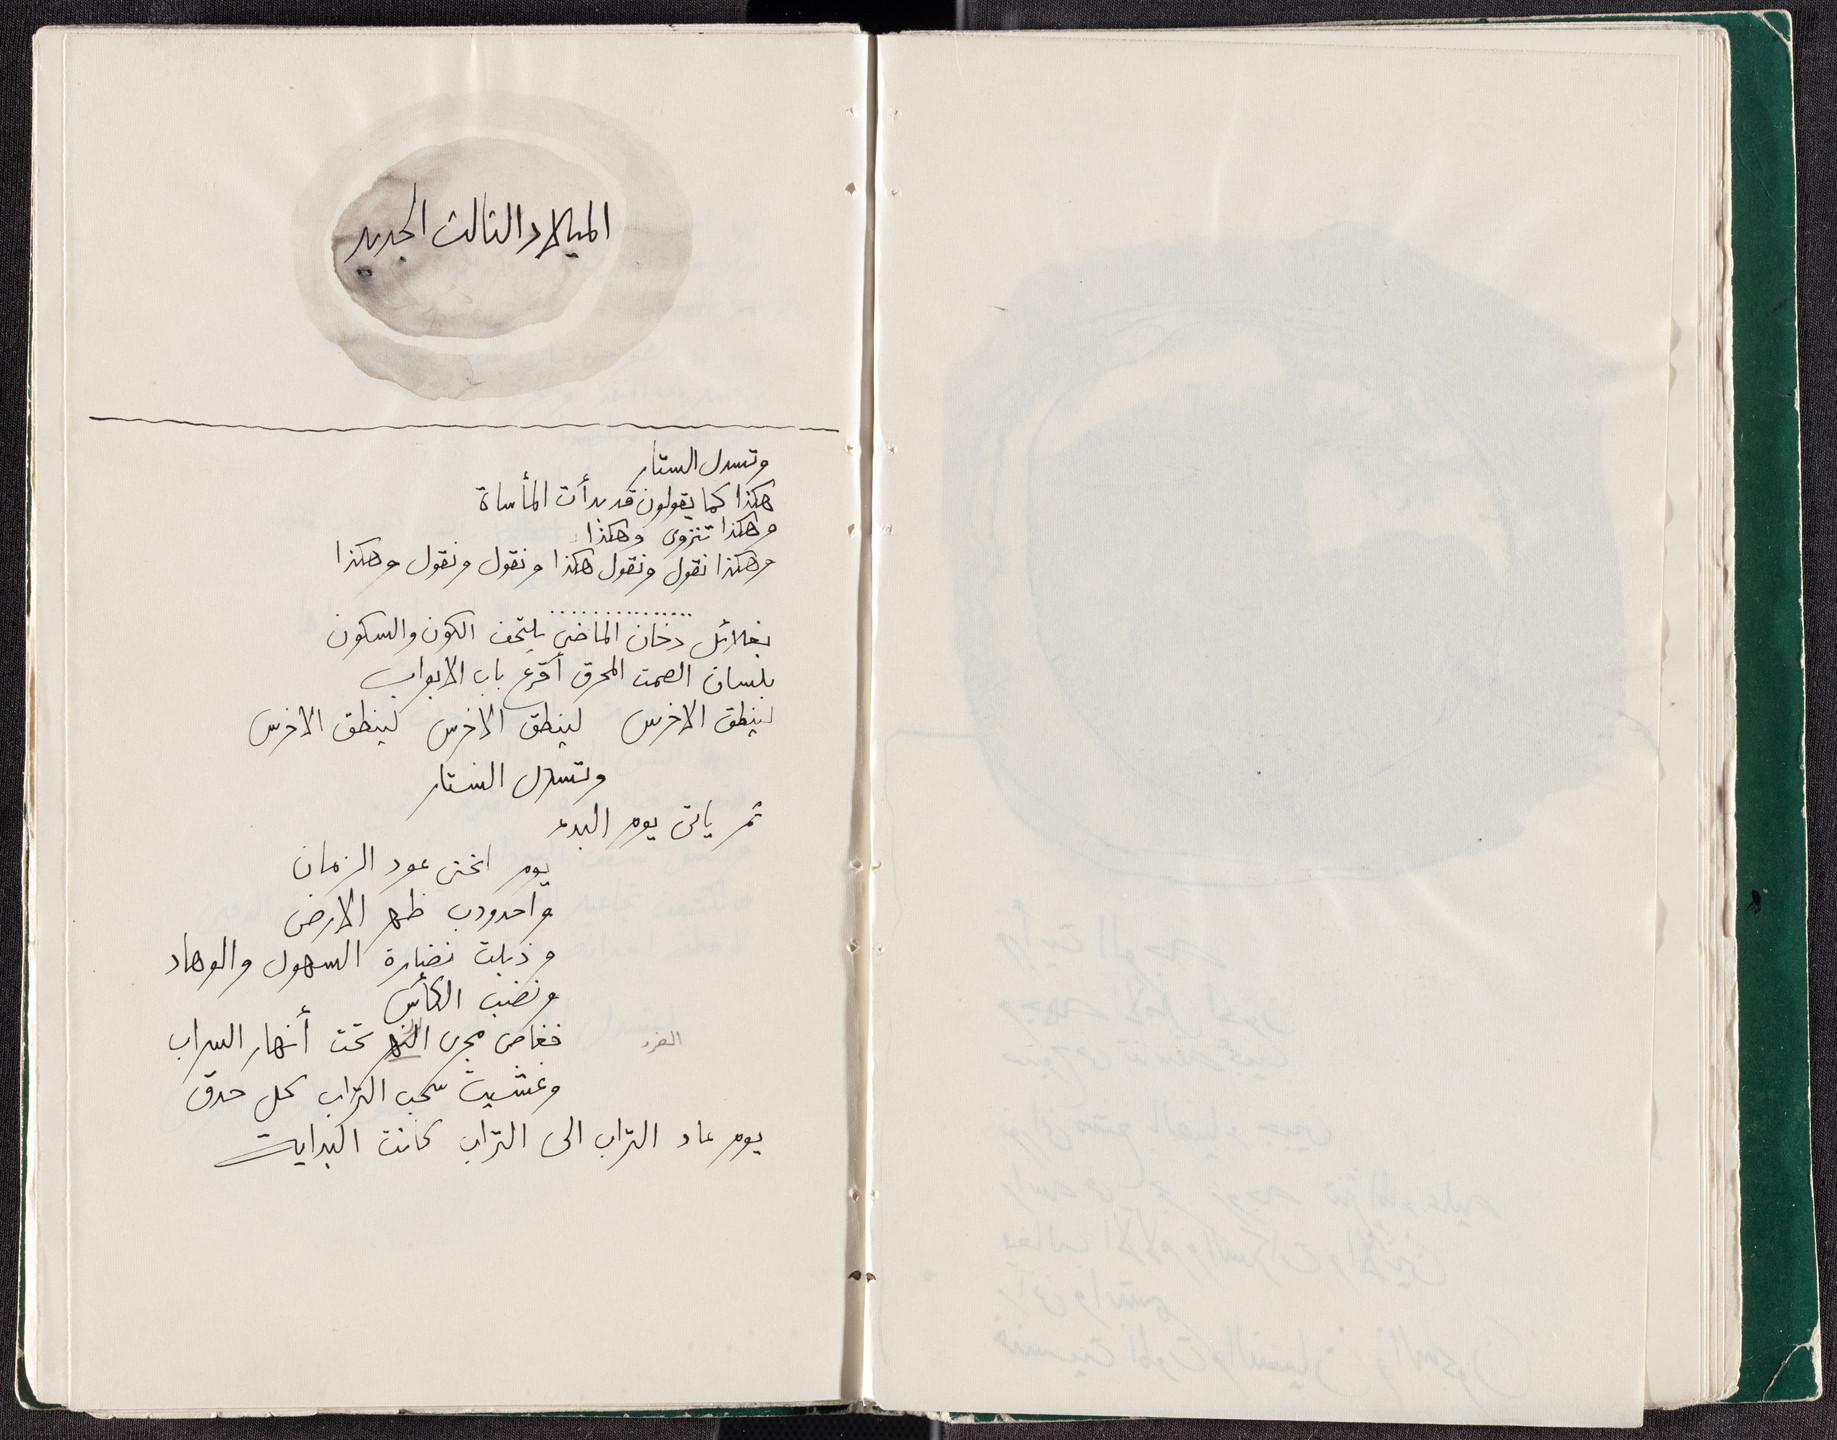 الميلاد الثالث الجديد
وتسدل الستار
هكذا كما يقولون قد بدأت المأساة
وهكذا تنزوى وهكذا
وهكذا نقول ونقول هكذا ونقول ونقول وهكذا
...............
بغلائل دخان الماضي يلتحف الكون والسكون
بلسان الصمت المحرق أقرع باب الابواب
لينطق الاخرس لينطق الاخرس لينطق الاخرس
وتسدل الستار
ثم ياتى يوم البدء
يوم انحنى عود الزمان
واحدودب ظهر الارض
وذبلت نضارة السهول والوهاد
ونضب الكأس
فغاص مجرى النهر تحت أنهار السراب
وغشيت سحب التراب كل حدق
يوم عاد التراب الى التراب كانت البداية